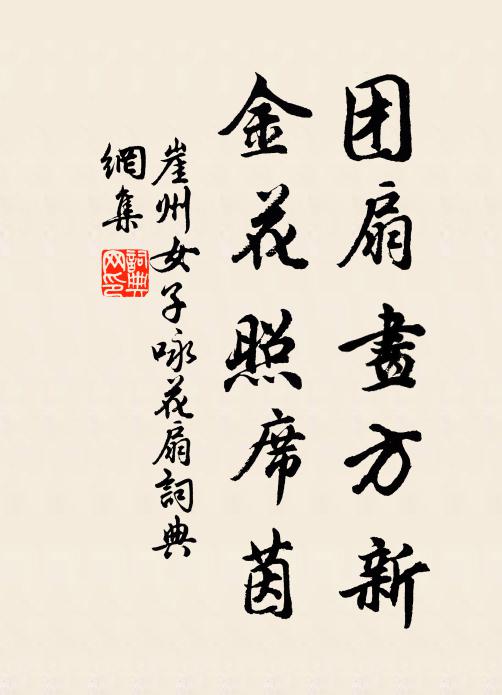 团扇畫方新
金花照席茵
崖州女子咏花扇詞典
網集
詞典
网印